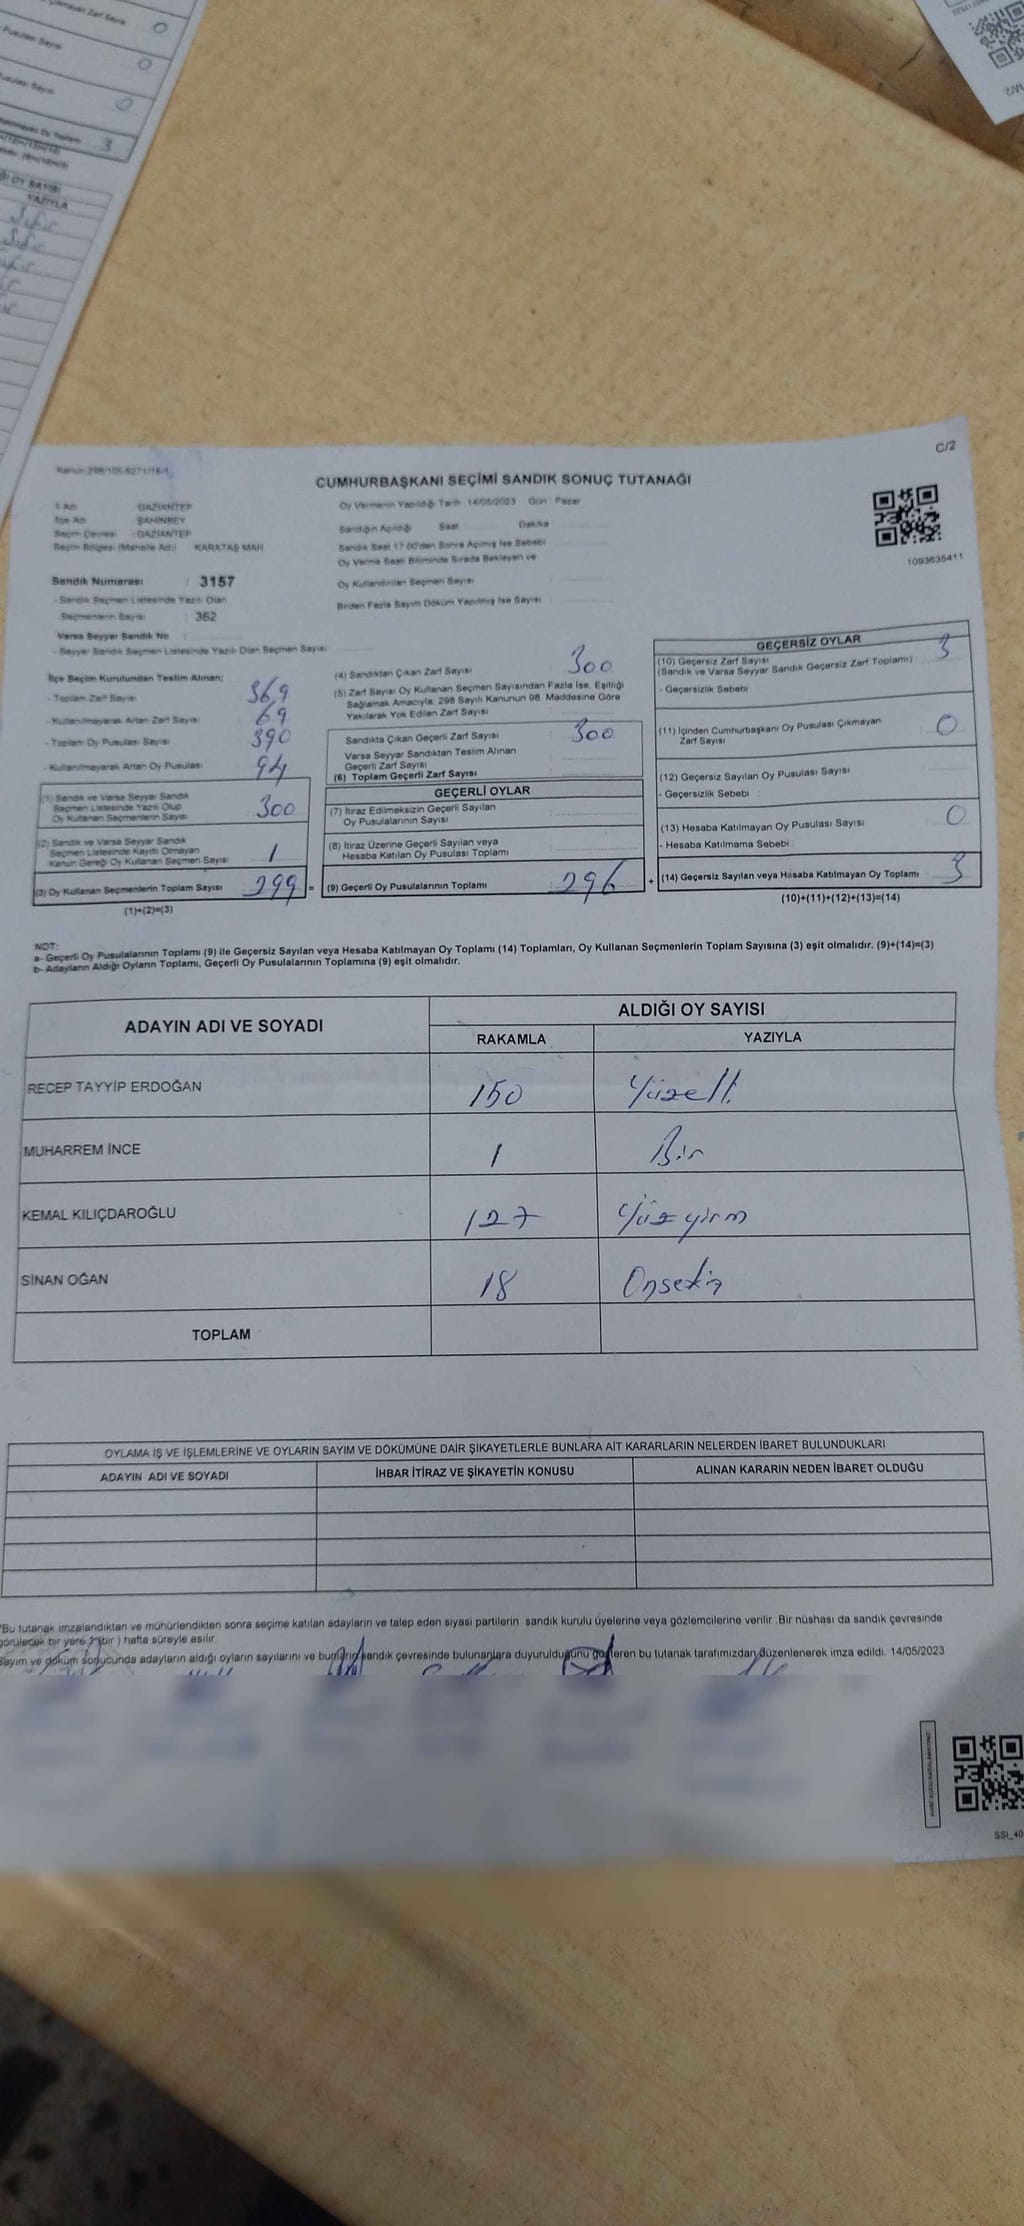 Pusulası Sayısı
0
0
0
3
YAZIYLA
Sıfır
Sıfır
Sıfır
C/2
CUMHURBAŞKANI SEÇİMİ SANDIK SONUÇ TUTANAĞI
İl Adı : GAZİANTEP
İlçe Adı : ŞAHİNBEY
Seçim Çevresi : GAZİANTEP
Seçim Bölgesi (Mahalle Adı) KARATAŞ MAH
Sandık Numarası : 3157
- Sandık Seçmen Listesinde Yazılı Olan
Seçmenlerin Sayısı : 362
Varsa Seyyar Sandık No :
- Seyyar Sandık Seçmen Listesinde Yazılı Olan Seçmen Sayısı
Oy Vermenin Yapıldığı Tarih : 14/05/2023 Gün : Pazar
Sandığın Açıldığı Saat Dakika
Sandık Saat 17:00'den Sonra Açılmış İse Sebebi
Oy Verme Saati Bitiminde Sırada Bekleyen ve
Oy Kullandırılan Seçmen Sayısı
Birden Fazla Sayım Döküm Yapılmış İse Sayısı
1093635411
İlçe Seçim Kurulundan Teslim Alınan;
- Toplam Zarf Sayısı 369
- Kullanılmayarak Artan Zarf Sayısı 69
- Toplam Oy Pusulası Sayısı 390
- Kullanılmayarak Artan Oy Pusulası 94
(1) Sandık ve Varsa Seyyar Sandık
Seçmen Listesinde Yazılı Olup
Oy Kullanan Seçmenlerin Sayısı 300
(2) Sandık ve Varsa Seyyar Sandık
Seçmen Listesinde Kayıtlı Olmayan
Kanun Gereği Oy Kullanan Seçmen Sayısı 1
(3) Oy Kullanan Seçmenlerin Toplam Sayısı 299 =
(1)+(2)=(3)
(4) Sandıktan Çıkan Zarf Sayısı 300
(5) Zarf Sayısı Oy Kullanan Seçmen Sayısından Fazla İse, Eşitliği
Sağlamak Amacıyla, 298 Sayılı Kanunun 98. Maddesine Göre
Yakılarak Yok Edilen Zarf Sayısı
Sandıkta Çıkan Geçerli Zarf Sayısı 300
Varsa Seyyar Sandıktan Teslim Alınan
Geçerli Zarf Sayısı
(6) Toplam Geçerli Zarf Sayısı
GEÇERLİ OYLAR
(7) İtiraz Edilmeksizin Geçerli Sayılan
Oy Pusulalarının Sayısı
(8) İtiraz Üzerine Geçerli Sayılan veya
Hesaba Katılan Oy Pusulası Toplamı
(9) Geçerli Oy Pusulalarının Toplamı 296 +
GEÇERSİZ OYLAR
(10) Geçersiz Zarf Sayısı 3
(Sandık ve Varsa Seyyar Sandık Geçersiz Zarf Toplamı)
- Geçersizlik Sebebi
(11) İçinden Cumhurbaşkanı Oy Pusulası Çıkmayan 0
Zarf Sayısı
(12) Geçersiz Sayılan Oy Pusulası Sayısı
- Geçersizlik Sebebi :
(13) Hesaba Katılmayan Oy Pusulası Sayısı 0
- Hesaba Katılmama Sebebi :
(14) Geçersiz Sayılan veya Hesaba Katılmayan Oy Toplamı 3
(10)+(11)+(12)+(13)=(14)
NOT:
a- Geçerli Oy Pusulalarının Toplamı (9) ile Geçersiz Sayılan veya Hesaba Katılmayan Oy Toplamı (14) Toplamları, Oy Kullanan Seçmenlerin Toplam Sayısına (3) eşit olmalıdır. (9)+(14)=(3)
b- Adayların Aldığı Oyların Toplamı, Geçerli Oy Pusulalarının Toplamına (9) eşit olmalıdır.
ADAYIN ADI VE SOYADI
ALDIĞI OY SAYISI
RAKAMLA YAZIYLA
RECEP TAYYİP ERDOĞAN 150 Yüzelli
MUHARREM İNCE 1 Bir
KEMAL KILIÇDAROĞLU 127 Yüzyirm
SİNAN OĞAN 18 Onsekiz
TOPLAM
OYLAMA İŞ VE İŞLEMLERİNE VE OYLARIN SAYIM VE DÖKÜMÜNE DAİR ŞİKAYETLERLE BUNLARA AİT KARARLARIN NELERDEN İBARET BULUNDUKLARI
ADAYIN ADI VE SOYADI İHBAR İTİRAZ VE ŞİKAYETİN KONUSU ALINAN KARARIN NEDEN İBARET OLDUĞU
*Bu tutanak imzalandıktan ve mühürlendikten sonra seçime katılan adayların ve talep eden siyasi partilerin sandık kurulu üyelerine veya gözlemcilerine verilir .Bir nüshası da sandık çevresinde
görülecek bir yere 1 (bir ) hafta süreyle asılır.
Sayım ve döküm sonucunda adayların aldığı oyların sayılarını ve bunların sandık çevresinde bulunanlara duyurulduğunu gösteren bu tutanak tarafımızdan düzenlenerek imza edildi. 14/05/2023
SSI_40